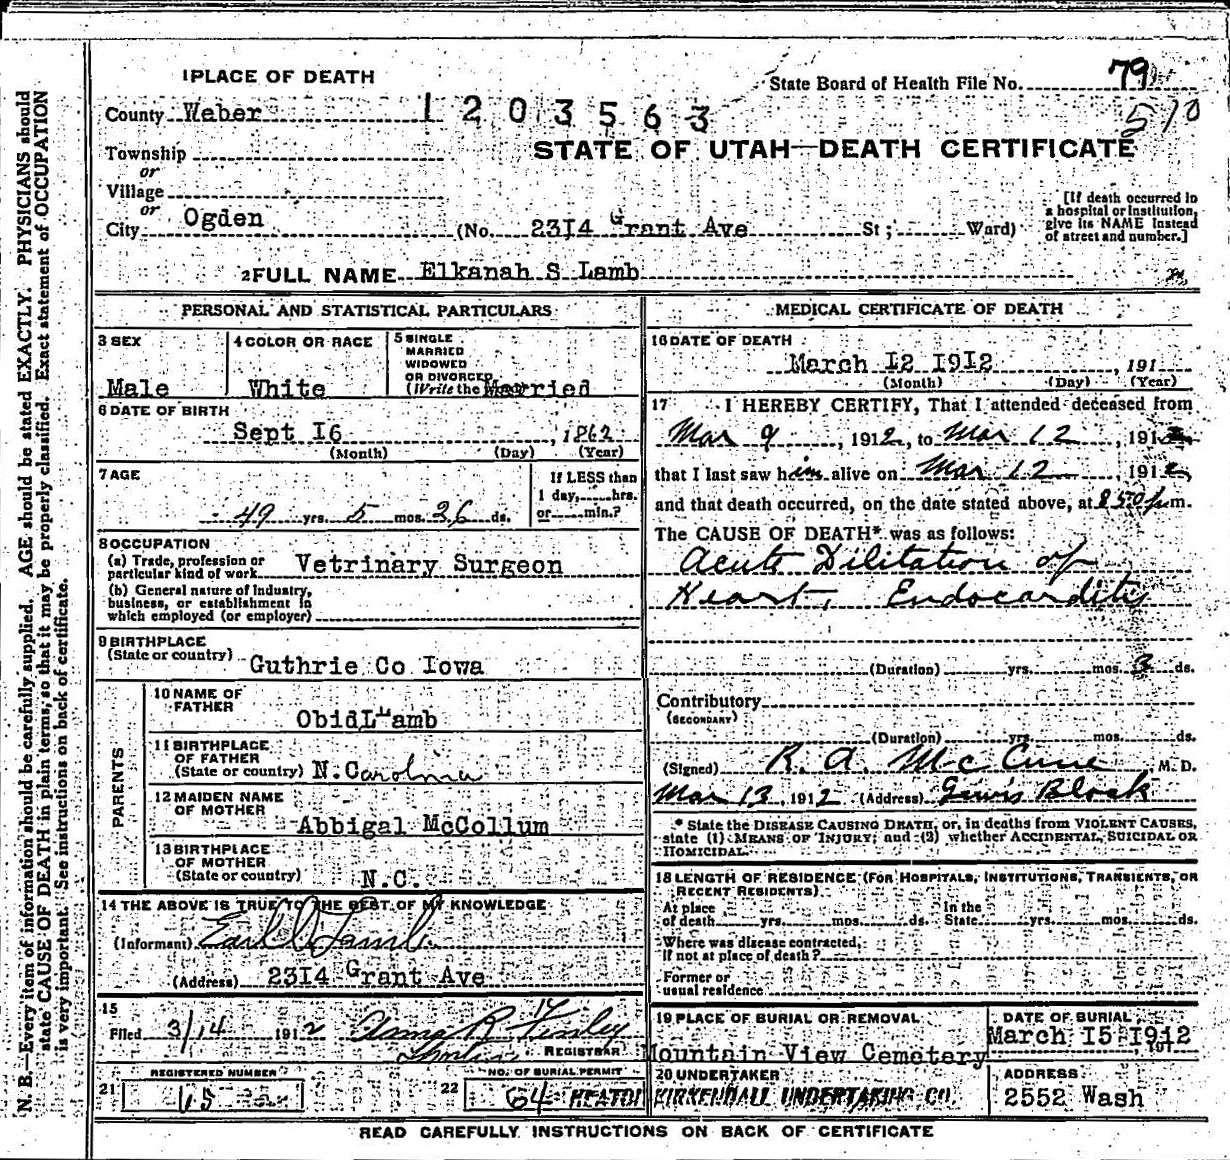 1 PLACE OF DEATH
State Board of Health File No. 79
County Weber 1203563 510
STATE OF UTAH—DEATH CERTIFICATE
Township
or
Village
or
City Ogden (No. 23I4 Grant Ave St; Ward)
[If death occurred in a hospital or institution, give its NAME instead of street and number.]
2 FULL NAME Elkanah S Lamb
PERSONAL AND STATISTICAL PARTICULARS
3 SEX
Male
4 COLOR OR RACE
White
5 SINGLE
MARRIED
WIDOWED
OR DIVORCED
(Write the word) Married
6 DATE OF BIRTH
Sept I6, 1862
(Month) (Day) (Year)
7 AGE
49 yrs. 5 mos. 26 ds.
If LESS than
1 day, hrs.
or min.?
8 OCCUPATION
(a) Trade, profession or
particular kind of work Vetrinary Surgeon
(b) General nature of industry,
business, or establishment in
which employed (or employer)
9 BIRTHPLACE
(State or country) Guthrie Co Iowa
PARENTS
10 NAME OF
FATHER
Obid Lamb
11 BIRTHPLACE
OF FATHER
(State or country) N. Carolina
12 MAIDEN NAME
OF MOTHER
Abbigal McCollum
13 BIRTHPLACE
OF MOTHER
(State or country) N.C.
14 THE ABOVE IS TRUE TO THE BEST OF MY KNOWLEDGE
(Informant) Earl Lamb
(Address) 23I4 Grant Ave
15
Filed 3/14 1912 R Finley
REGISTRAR
REGISTERED NUMBER
21 15
NO. OF BURIAL PERMIT
22 64 HEATON
MEDICAL CERTIFICATE OF DEATH
16 DATE OF DEATH
March I2 I9I2, 191
(Month) (Day) (Year)
17 I HEREBY CERTIFY, That I attended deceased from
Mar 9, 1912, to Mar 12, 1912
that I last saw him alive on Mar 12 1912
and that death occurred, on the date stated above, at 8 50 p m.
The CAUSE OF DEATH* was as follows:
Acute Dilitation of
Heart, Endocarditis
(Duration) yrs. mos. 3 ds.
Contributory
(SECONDARY)
(Duration) yrs. mos. ds.
(Signed) R. A. McCune, M. D.
Mar 13, 1912 (Address) Lewis Block
* State the DISEASE CAUSING DEATH, or, in deaths from VIOLENT CAUSES,
state (1) MEANS OF INJURY; and (2) whether ACCIDENTAL, SUICIDAL OR
HOMICIDAL.
18 LENGTH OF RESIDENCE (FOR HOSPITALS, INSTITUTIONS, TRANSIENTS, OR
RECENT RESIDENTS)
At place In the
of death yrs. mos. ds. State yrs. mos. ds.
Where was disease contracted,
if not at place of death?
Former or
usual residence
19 PLACE OF BURIAL OR REMOVAL
Mountain View Cemetery
DATE OF BURIAL
March I5 I9I2, 191
20 UNDERTAKER
KIRKENDALL UNDERTAKING CO.
ADDRESS
2552 Wash
READ CAREFULLY INSTRUCTIONS ON BACK OF CERTIFICATE
N. B.—Every item of information should be carefully supplied. AGE should be stated EXACTLY. PHYSICIANS should
state CAUSE OF DEATH in plain terms, so that it may be properly classified. Exact statement of OCCUPATION
is very important. See instructions on back of certificate.